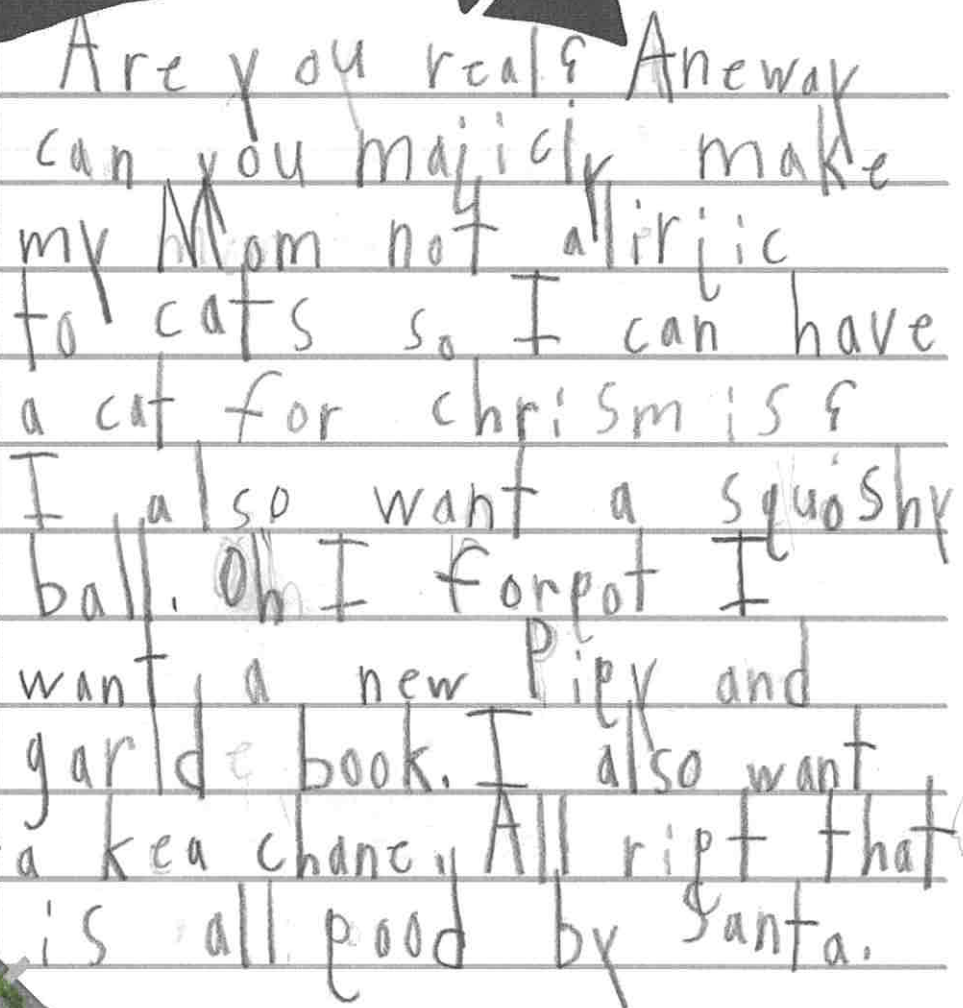 Are you real? Aneway
can you majicly make
my Mom not allirjic
to cats so I can have
a cat for chrismis?
I also want a squoshy
ball. Oh I forgot I
want a new Pigy and
garlde book. I also want
a kea chane. All rigt that
is all good by Santa.